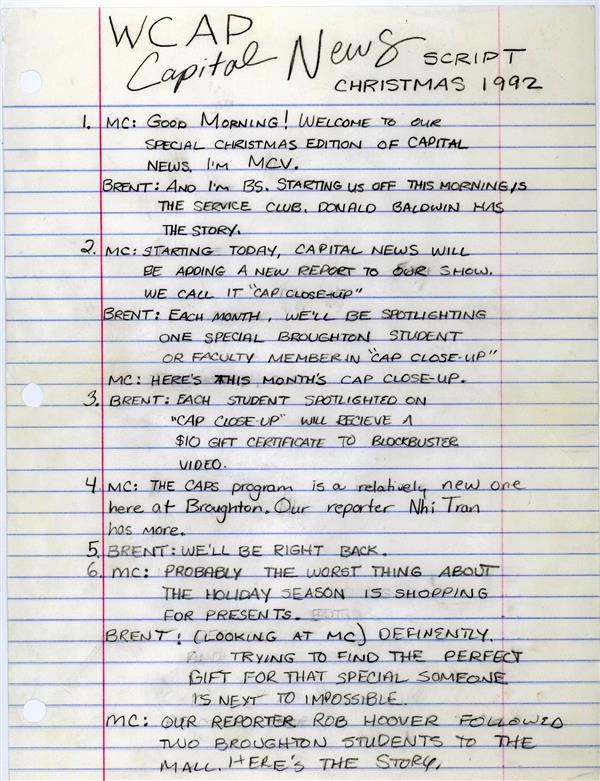 WCAP
Capital News SCRIPT
CHRISTMAS 1992
1. MC: GOOD MORNING! WELCOME TO OUR
SPECIAL CHRISTMAS EDITION OF CAPITAL
NEWS. I'M MCV.
BRENT: AND I'M BS. STARTING US OFF THIS MORNING IS
THE SERVICE CLUB. DONALD BALDWIN HAS
THE STORY.
2. MC: STARTING TODAY, CAPITAL NEWS WILL
BE ADDING A NEW REPORT TO OUR SHOW.
WE CALL IT "CAP CLOSE-UP"
BRENT: EACH MONTH, WE'LL BE SPOTLIGHTING
ONE SPECIAL BROUGHTON STUDENT
OR FACULTY MEMBER IN "CAP CLOSE-UP"
MC: HERE'S THIS MONTH'S CAP CLOSE-UP.
3. BRENT: EACH STUDENT SPOTLIGHTED ON
"CAP CLOSE-UP" WILL RECIEVE A
$10 GIFT CERTIFICATE TO BLOCKBUSTER
VIDEO.
4. MC: THE CAPS program is a relatively new one
here at Broughton. Our reporter Nhi Tran
has more.
5. BRENT: WE'LL BE RIGHT BACK.
6. MC: PROBABLY THE WORST THING ABOUT
THE HOLIDAY SEASON IS SHOPPING
FOR PRESENTS.
BRENT: (LOOKING AT MC) DEFINENTLY.
TRYING TO FIND THE PERFECT
GIFT FOR THAT SPECIAL SOMEONE
IS NEXT TO IMPOSSIBLE.
MC: OUR REPORTER ROB HOOVER FOLLOWED
TWO BROUGHTON STUDENTS TO THE
MALL. HERE'S THE STORY.